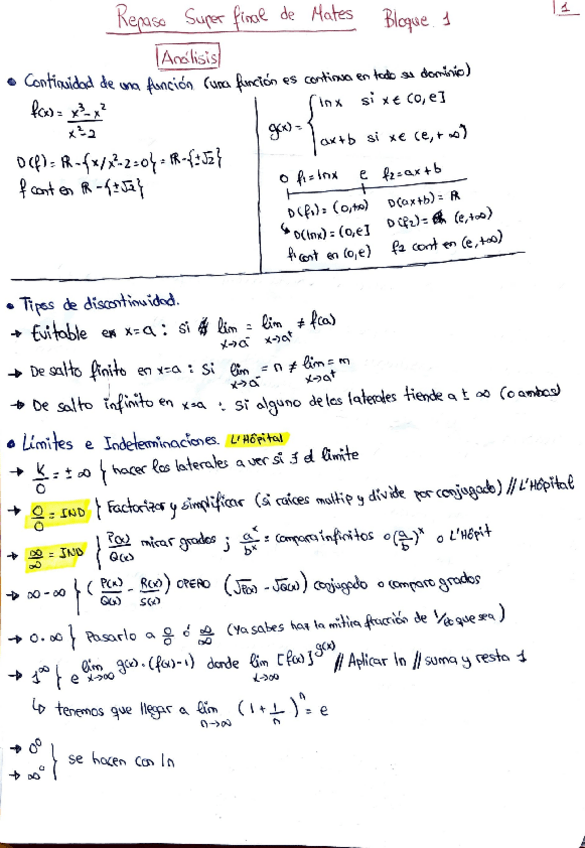 Repaso Super final de Mates Bloque 1
1
Análisis
• Continuidad de una función (una función es continua en todo su dominio)
f(x) = x³-x² / x²-2
D(f) = R - {x/x²-2=0} = R - {±√2}
f cont en R - {±√2}
g(x) = { lnx si x ∈ (0, e]
ax+b si x ∈ (e, +∞)
0 f₁=lnx e f₂=ax+b
D(f₁) = (0,+∞) D(ax+b) = R
↳ D(lnx) = (0,e] D(f₂) = (e,+∞)
f₁ cont en (0,e) f₂ cont en (e,+∞)
• Tipos de discontinuidad.
→ Evitable en x=a : si ∄ lim x→a⁻ = lim x→a⁺ ≠ f(a)
→ De salto finito en x=a : si lim x→a⁻ = n ≠ lim x→a⁺ = m
→ De salto infinito en x=a : si alguno de los laterales tiende a ± ∞ (o ambos)
• Límites e Indeterminaciones. L'Hôpital
→ K/0 = ±∞ } hacer los laterales a ver si ∃ el límite
→ 0/0 = IND } Factorizar y simplificar (si raíces multip y divide por conjugado) // L'Hôpital
→ ∞/∞ = IND { P(x)/Q(x) mirar grados ; aˣ/bˣ = compara infinitos o (a/b)ˣ o L'Hôpit
→ ∞-∞ } ( P(x)/Q(x) - R(x)/S(x) ) OPERO (√P(x) - √Q(x)) conjugado o comparo grados
→ 0·∞ } Pasarlo a 0/0 ó ∞/∞ (ya sabes haz la mitira fracción de 1/lo que sea)
→ 1^∞ } e^lim x→∞ g(x)·(f(x)-1) donde lim x→∞ [f(x)]^g(x) // Aplicar ln // suma y resta 1
↳ tenemos que llegar a lim n→∞ (1 + 1/n)ⁿ = e
→ 0⁰
→ ∞⁰ } se hacen con ln